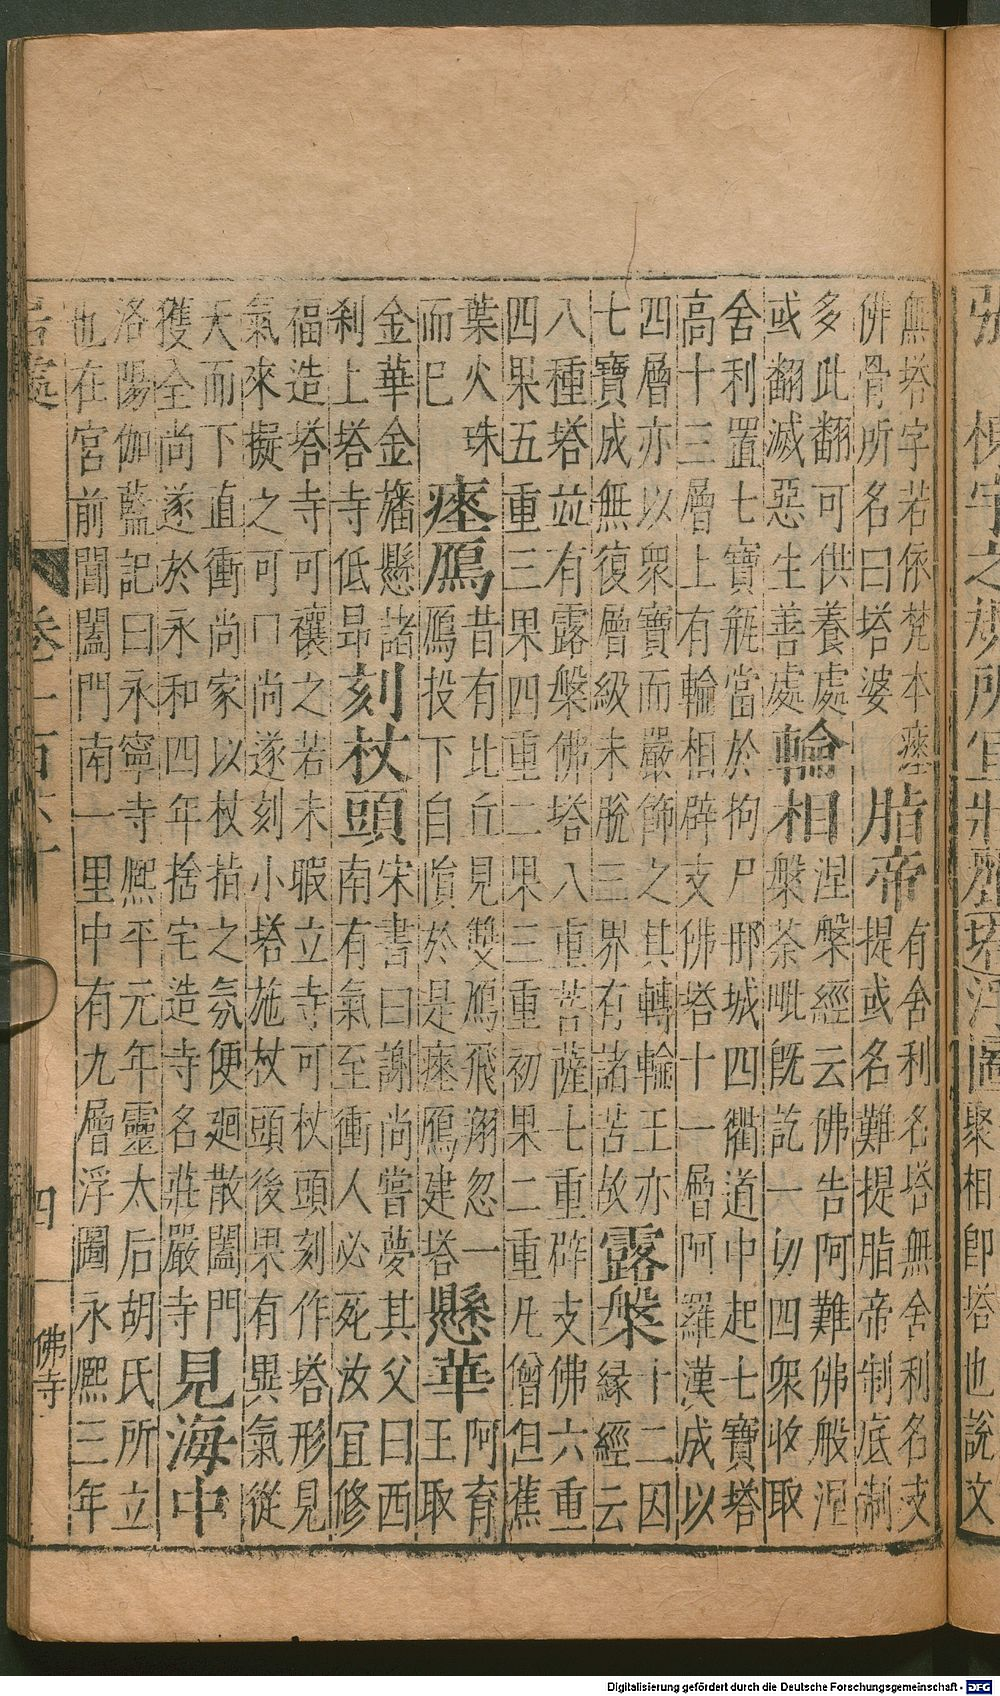 聚相即塔也說文
無塔字若依梵本瘞
佛骨所名曰塔婆
脂帝
有舍利名塔無舍利名支
提或名難提脂帝制底制
多此翻可供養處
或翻滅惡生善處
輪相
涅槃經云佛告阿難佛般涅
槃荼毗既訖一切四眾收取
舍利置七寶瓶當於拘尸那城四衢道中起七寶塔
高十三層上有輪相辟支佛塔十一層阿羅漢成以
四層亦以眾寶而嚴飾之其轉輪王亦
七寶成無復層級未脫三界有諸苦故
露槃
十二因
緣經云
八種塔並有露槃佛塔八重菩薩七重辟支佛六重
四果五重三果四重二果三重初果二重凡僧但蕉
葉火珠
而已
瘞鴈
昔有比丘見雙鴈飛翔忽一
鴈投下自慣於是瘞鴈建塔
懸華
阿育
王取
金華金旛懸諸
剎上塔寺低昂
刻杖頭
宋書曰謝尚嘗夢其父曰西
南有氣至衝人必死汝宜修
福造塔寺可禳之若未暇立寺可杖頭刻作塔形見
氣來擬之可口尚遂刻小塔施杖頭後果有異氣從
天而下直衝尚家以杖指之氛便廻散闔門
獲全尚遂於永和四年捨宅造寺名莊嚴寺
見海中
洛陽伽藍記曰永寧寺熙平元年靈太后胡氏所立
也在宮前閶闔門南一里中有九層浮圖永熙三年
居處
卷一百
四
佛寺
Digitalisierung gefördert durch die Deutsche Forschungsgemeinschaft - DFG